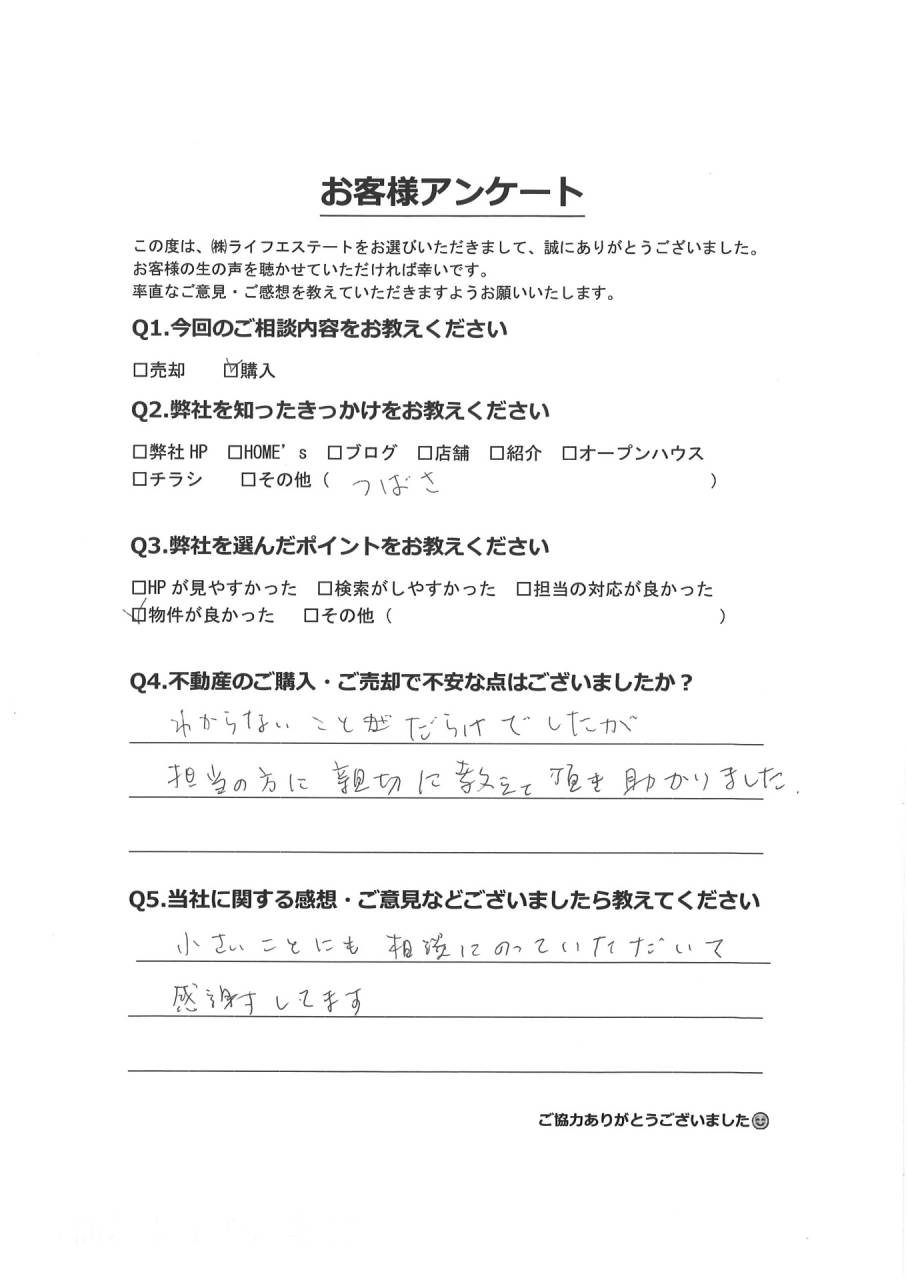 お客様アンケート
この度は、㈱ライフエステートをお選びいただきまして、誠にありがとうございました。
お客様の生の声を聴かせていただければ幸いです。
率直なご意見・ご感想を教えていただきますようお願いいたします。
Q1.今回のご相談内容をお教えください
□売却 ☑購入
Q2.弊社を知ったきっかけをお教えください
□弊社HP □HOME's □ブログ □店舗 □紹介 □オープンハウス
□チラシ □その他（ つばさ ）
Q3.弊社を選んだポイントをお教えください
□HPが見やすかった □検索がしやすかった □担当の対応が良かった
☑物件が良かった □その他（ ）
Q4.不動産のご購入・ご売却で不安な点はございましたか？
わからないことがだらけでしたが
担当の方に親切に教えて頂き助かりました.
Q5.当社に関する感想・ご意見などございましたら教えてください
小さいことにも相談にのっていただいて
感謝してます
ご協力ありがとうございました